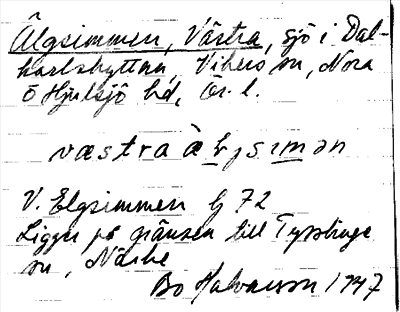 Älgsimmen, Västra, sjö i Dal-
karlshyttan, Vikers sn, Nora
o Hjulsjö hd, Ör. l.
væstra
V. Elgsimmen G 72
Ligger på gränsen till Tysslinge
sn, Närke
Bo 1947